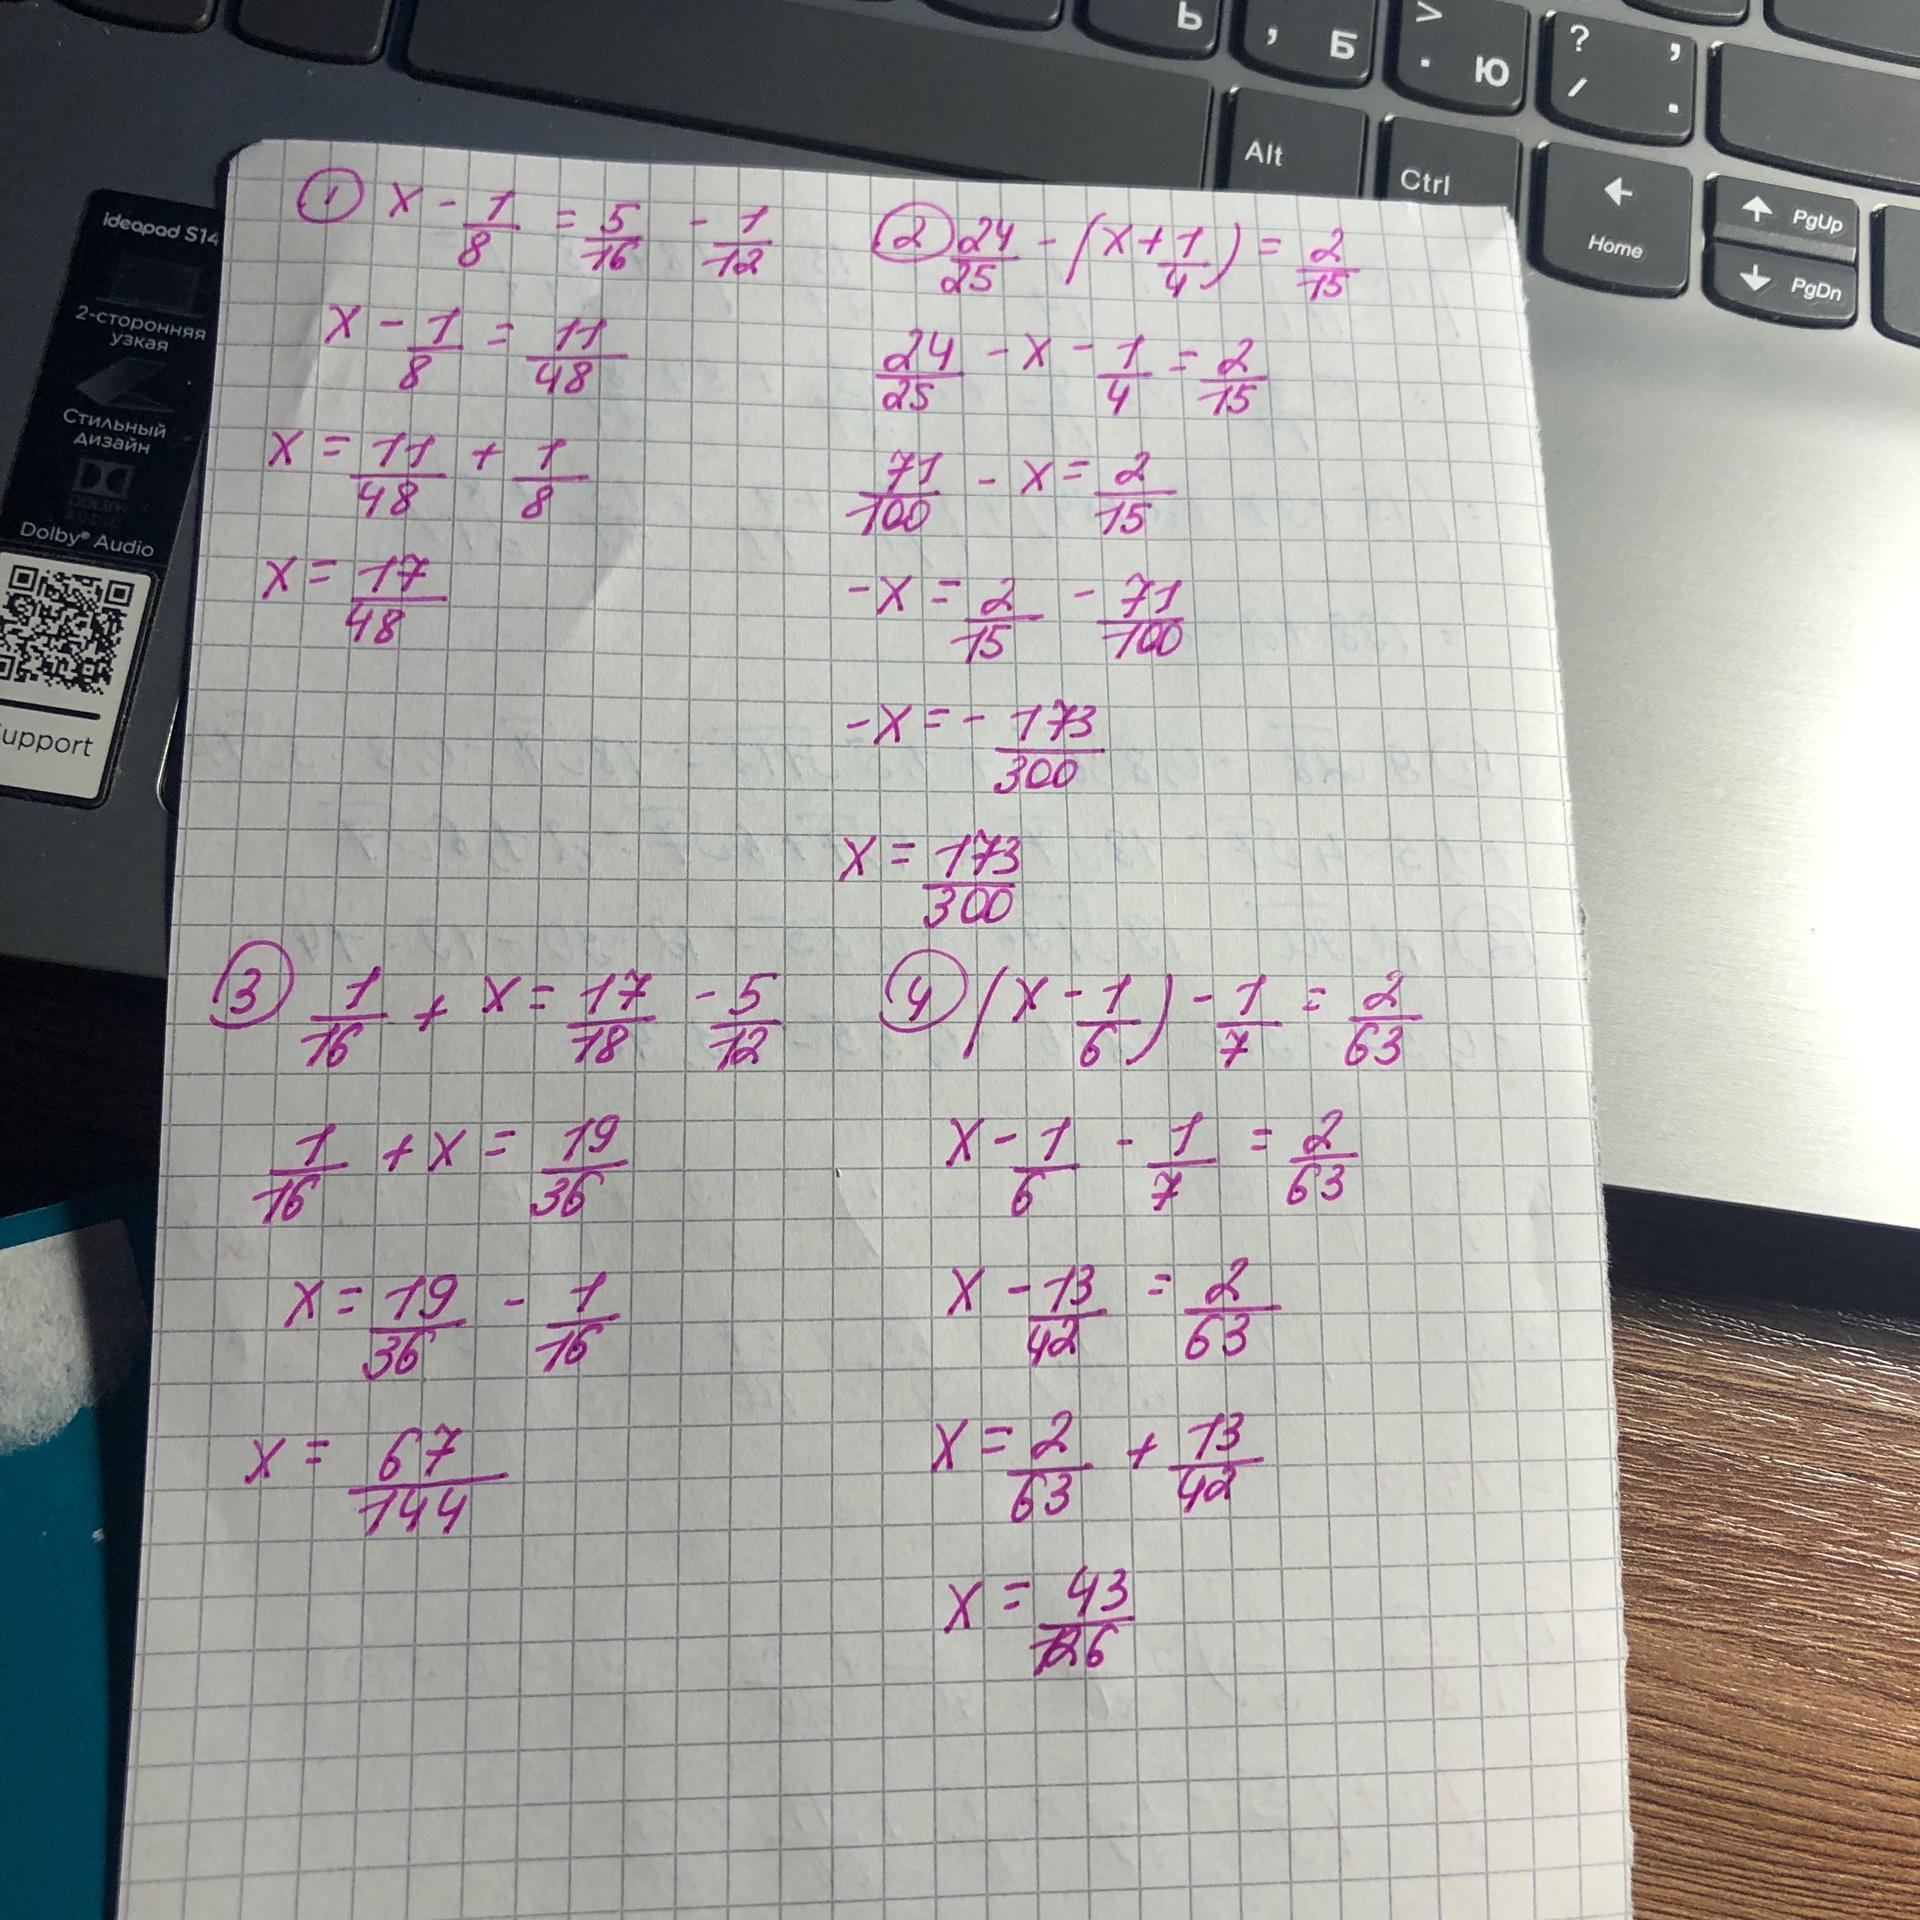 Ь
, Б
>
. Ю
? ,
/ .
Alt
Ctrl
←
Home
↑ PgUp
↓ PgDn
ideapad S14
2-сторонняя
узкая
Стильный
дизайн
DOLBY
AUDIO
Dolby® Audio
upport
① x - 1/8 = 5/16 - 1/12
x - 1/8 = 11/48
x = 11/48 + 1/8
x = 17/48
② 24/25 - (x + 1/4) = 2/15
24/25 - x - 1/4 = 2/15
71/100 - x = 2/15
-x = 2/15 - 71/100
-x = - 173/300
x = 173/300
③ 1/16 + x = 17/18 - 5/12
1/16 + x = 19/36
x = 19/36 - 1/16
x = 67/144
④ (x - 1/6) - 1/7 = 2/63
x - 1/6 - 1/7 = 2/63
x - 13/42 = 2/63
x = 2/63 + 13/42
x = 43/126